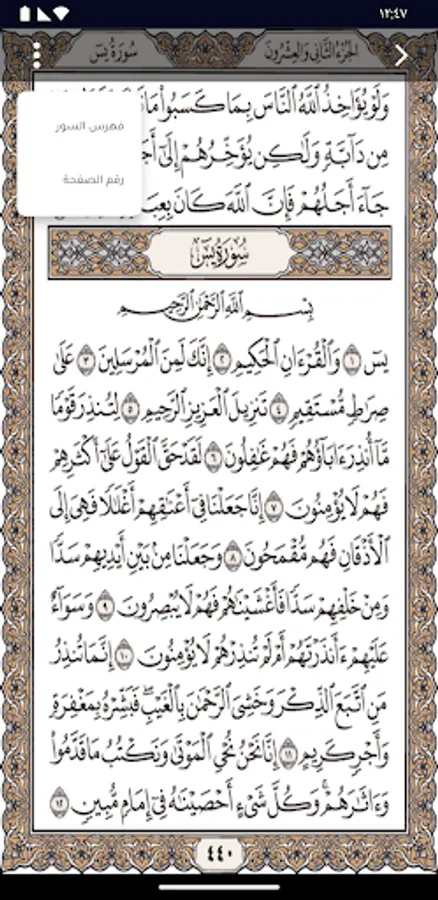 ١٢:٤٧
الجزء الثاني والعشرون
سورة يس
فهرس السور
رقم الصفحة
وَلَوْ يُؤَاخِذُ ٱللَّهُ ٱلنَّاسَ بِمَا كَسَبُوا۟ مَا
مِن دَآبَّةٍ وَلَٰكِن يُؤَخِّرُهُمْ إِلَىٰٓ
جَآءَ أَجَلُهُمْ فَإِنَّ ٱللَّهَ كَانَ
سُورَةُ يسٓ
بِسْمِ ٱللَّهِ ٱلرَّحْمَٰنِ ٱلرَّحِيمِ
يسٓ ١ وَٱلْقُرْءَانِ ٱلْحَكِيمِ ٢ إِنَّكَ لَمِنَ ٱلْمُرْسَلِينَ ٣ عَلَىٰ
صِرَٰطٍ مُّسْتَقِيمٍ ٤ تَنزِيلَ ٱلْعَزِيزِ ٱلرَّحِيمِ ٥ لِتُنذِرَ قَوْمًا
مَّآ أُنذِرَ ءَابَآؤُهُمْ فَهُمْ غَٰفِلُونَ ٦ لَقَدْ حَقَّ ٱلْقَوْلُ عَلَىٰٓ أَكْثَرِهِمْ
فَهُمْ لَا يُؤْمِنُونَ ٧ إِنَّا جَعَلْنَا فِىٓ أَعْنَٰقِهِمْ أَغْلَٰلًا فَهِىَ إِلَى
ٱلْأَذْقَانِ فَهُم مُّقْمَحُونَ ٨ وَجَعَلْنَا مِنۢ بَيْنِ أَيْدِيهِمْ سَدًّا
وَمِنْ خَلْفِهِمْ سَدًّا فَأَغْشَيْنَٰهُمْ فَهُمْ لَا يُبْصِرُونَ ٩ وَسَوَآءٌ
عَلَيْهِمْ ءَأَنذَرْتَهُمْ أَمْ لَمْ تُنذِرْهُمْ لَا يُؤْمِنُونَ ١٠ إِنَّمَا تُنذِرُ
مَنِ ٱتَّبَعَ ٱلذِّكْرَ وَخَشِىَ ٱلرَّحْمَٰنَ بِٱلْغَيْبِ ۖ فَبَشِّرْهُ بِمَغْفِرَةٍ
وَأَجْرٍ كَرِيمٍ ١١ إِنَّا نَحْنُ نُحْىِ ٱلْمَوْتَىٰ وَنَكْتُبُ مَا قَدَّمُوا۟
وَءَاثَٰرَهُمْ ۚ وَكُلَّ شَىْءٍ أَحْصَيْنَٰهُ فِىٓ إِمَامٍ مُّبِينٍ ١٢
٤٤٠